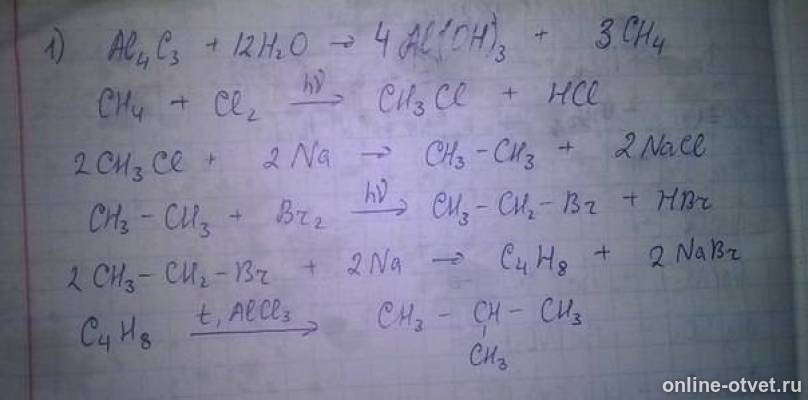 1) Al₄C₃ + 12H₂O → 4Al(OH)₃ + 3CH₄
CH₄ + Cl₂ →(hν) CH₃Cl + HCl
2CH₃Cl + 2Na → CH₃-CH₃ + 2NaCl
CH₃-CH₃ + Br₂ →(hν) CH₃-CH₂-Br + HBr
2CH₃-CH₂-Br + 2Na → C₄H₈ + 2NaBr
C₄H₈ →(t, AlCl₃) CH₃ - CH - CH₃
CH₃
online-otvet.ru